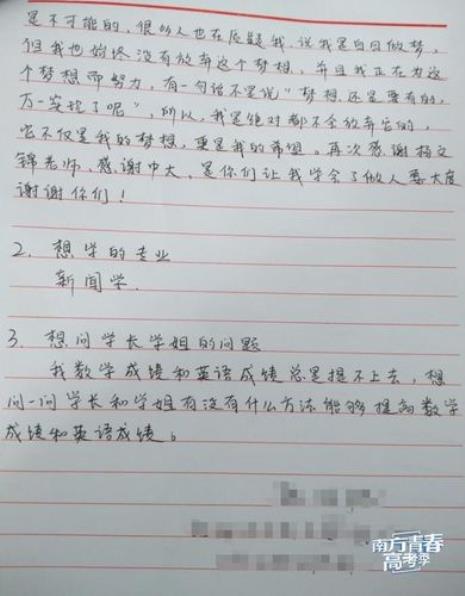 是不可能的，很多人也在质疑我，说我是白日做梦，
但我也始终没有放弃这个梦想，并且我正在为这
个梦想而努力，有一句话不是说“梦想还是要有的，
万一实现了呢”，所以，我是绝对都不会放弃它的，
它不仅是我的梦想，更是我的希望。再次感谢杨文
锦老师、感谢中大，是你们让我学会了做人要大度
谢谢你们！
2. 想学的专业
新闻学.
3. 想问学长学姐的问题
我数学成绩和英语成绩总是提不上去，想
问一问学长和学姐有没有什么方法能够提高数学
成绩和英语成绩。
南方青春
高考季